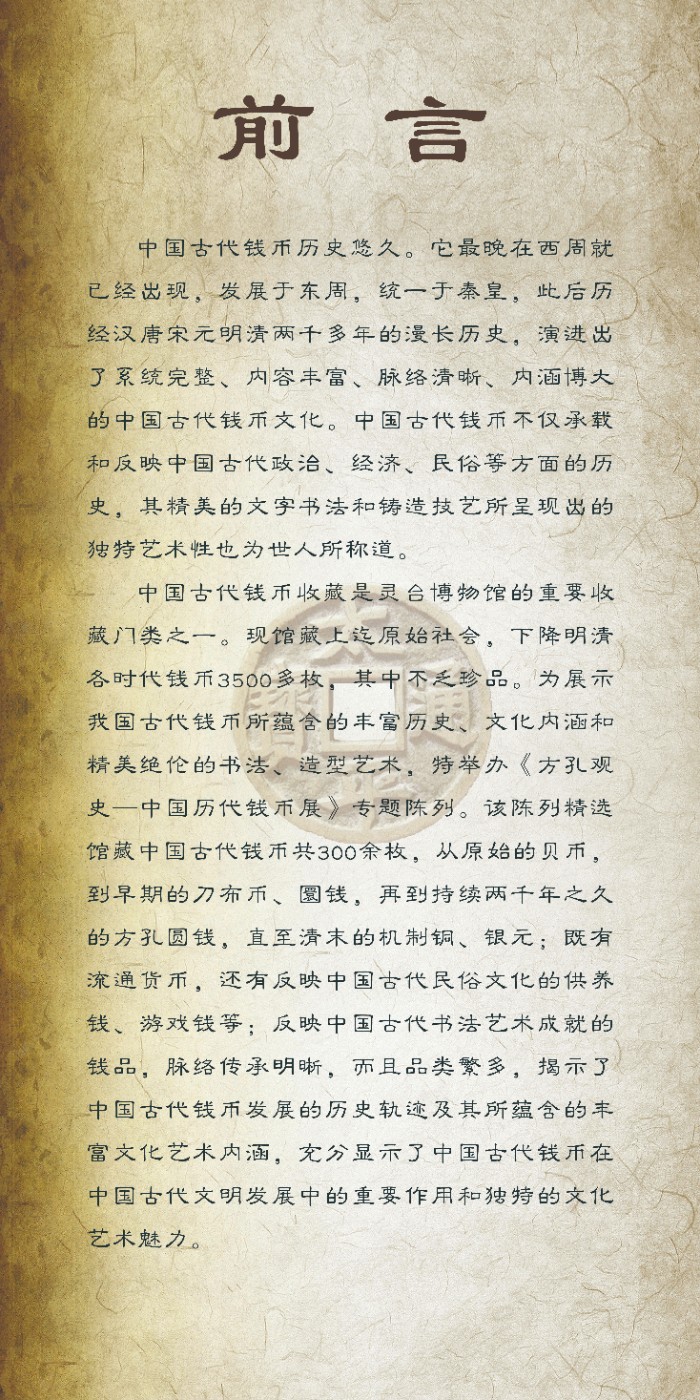 前言
中国古代钱币历史悠久。它最晚在西周就
已经出现，发展于东周，统一于秦皇，此后历
经汉唐宋元明清两千多年的漫长历史，演进出
了系统完整、内容丰富、脉络清晰、内涵博大
的中国古代钱币文化。中国古代钱币不仅承载
和反映中国古代政治、经济、民俗等方面的历
史，其精美的文字书法和铸造技艺所呈现出的
独特艺术性也为世人所称道。
中国古代钱币收藏是灵台博物馆的重要收
藏门类之一。现馆藏上迄原始社会，下降明清
各时代钱币3500多枚，其中不乏珍品。为展示
我国古代钱币所蕴含的丰富历史、文化内涵和
精美绝伦的书法、造型艺术，特举办《方孔观
史—中国历代钱币展》专题陈列。该陈列精选
馆藏中国古代钱币共300余枚，从原始的贝币，
到早期的刀布币、圜钱，再到持续两千年之久
的方孔圆钱，直至清末的机制铜、银元；既有
流通货币，还有反映中国古代民俗文化的供养
钱、游戏钱等；反映中国古代书法艺术成就的
钱品，脉络传承明晰，而且品类繁多，揭示了
中国古代钱币发展的历史轨迹及其所蕴含的丰
富文化艺术内涵，充分显示了中国古代钱币在
中国古代文明发展中的重要作用和独特的文化
艺术魅力。